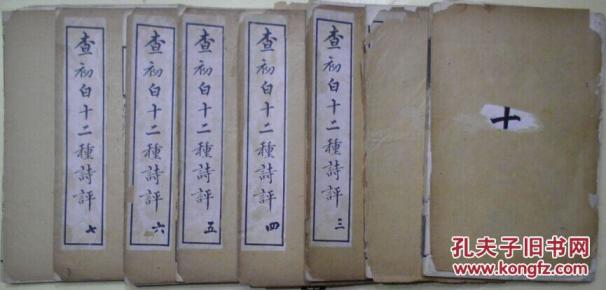 十
查初白十二種詩評 三
查初白十二種詩評 四
查初白十二種詩評 五
查初白十二種詩評 六
查初白十二種詩評 七
孔夫子旧书网
www.kongfz.com